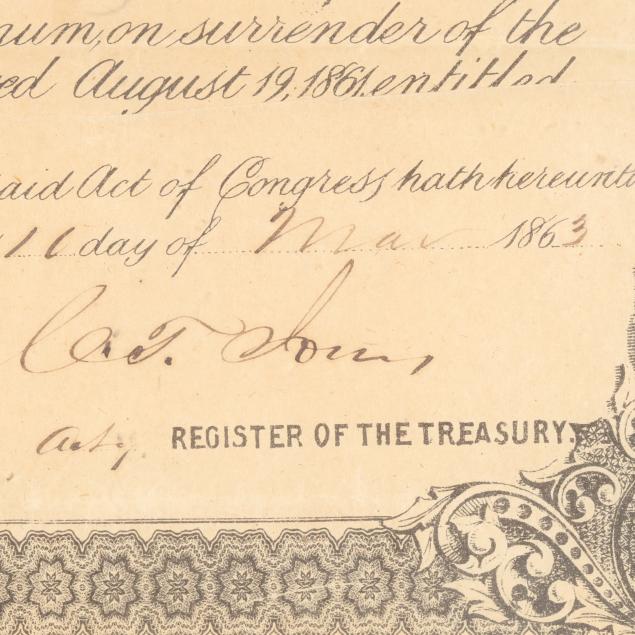 num, on surrender of the
ed August 19, 1861, entitled
said Act of Congress, hath hereunto
11 day of Mar 1863
C. T. Jones
Actg. REGISTER OF THE TREASURY.